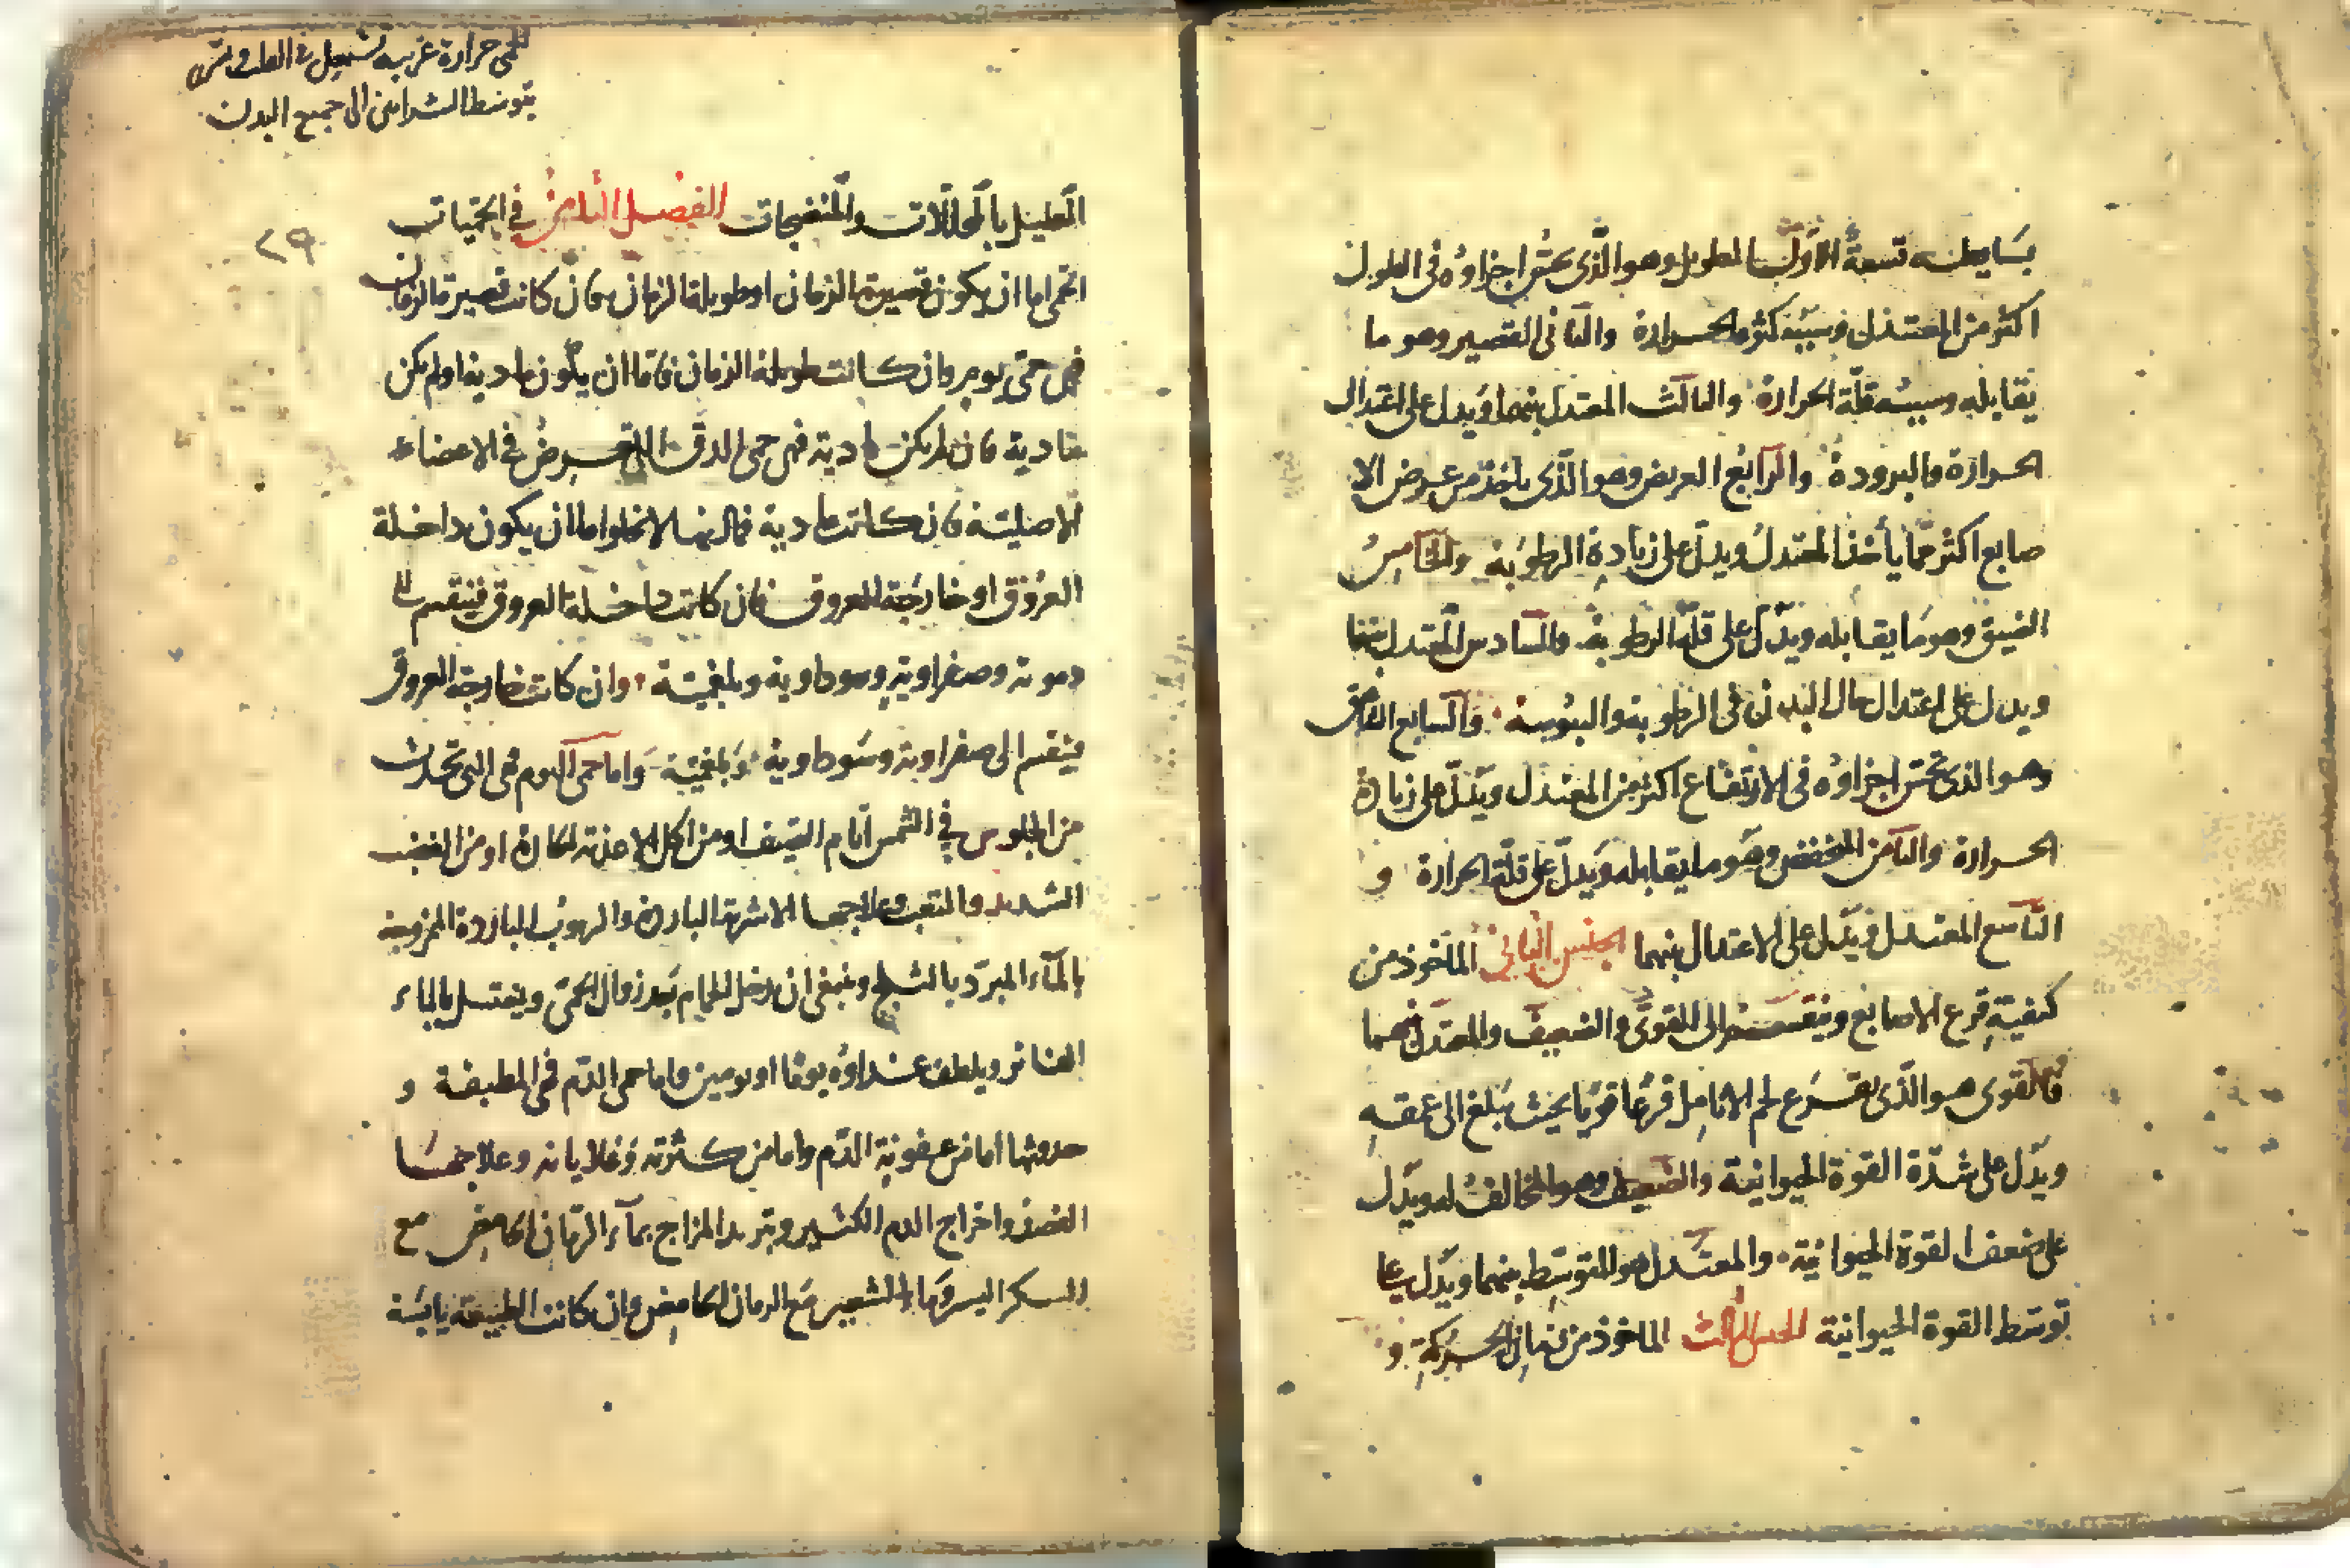 بسايطه تسعة الاول الطويل وهو الذى يحس اجزاؤه فى الطول
اكثر من المعتدل وسببه كثرة الحرارة والثانى القصير وهو ما
يقابله وسببه قلة الحرارة والثالث المعتدل بينهما ويدل على اعتدال
الحرارة والبرودة والرابع العريض وهو الذى ياخذ من عرض الا
صابع اكثر مما يأخذ المعتدل ويدل على زيادة الرطوبة والخامس
الضيق وهو ما يقابله ويدل على قلة الرطوبة والسادس المعتدل بينهما
ويدل على اعتدال حال البدن فى الرطوبة واليبوسة والسابع الشاهق
وهو الذى تحس اجزاؤه فى الارتفاع اكثر من المعتدل ويدل على زيادة
الحرارة والثامن المنخفض وهو ما يقابله ويدل على قلة الحرارة و
التاسع المعتدل ويدل على الاعتدال بينهما الجنس الثانى المأخوذ من
كيفية قرع الاصابع وينقسم الى القوى والضعيف والمعتدل بينهما
فالقوى هو الذى يقرع لحم الانامل قرعا قويا بحيث يبلغ الى عمقه
ويدل على شدة القوة الحيوانية والضعيف وهو المخالف له ويدل
على ضعف القوة الحيوانية والمعتدل هو المتوسط بينهما ويدل على
توسط القوة الحيوانية الجنس الثالث الماخوذ من زمان الحركة و
الحمى حرارة غريبة تشتعل فى القلب و
بتوسط الشرايين الى جميع البدن
٢٩
بالمحللات والمنضجات الفصل الثامن فى الحميات
الحمى اما ان يكون قصيرة الزمان او طويلة الزمان فان كانت قصيرة الزمان
فهى حمى يوم وان كانت طويلة الزمان فاما ان يكون مادية او لم يكن
مادية فان لم يكن مادية فهى حمى الدق التى تعرض فى الاعضاء
الاصلية فان كانت مادية لا يخلوا اما ان يكون داخلة
العروق او خارجة العروق فان كانت داخلة العروق فينقسم الى
دموية وصفراوية وسوداوية وبلغمية وان كانت خارجة العروق
فينقسم الى صفراوية وسوداوية وبلغمية واما حمى اليوم فهى التى تحدث
من الجلوس فى الشمس ايام الصيف او من اكل الاغذية الحارة او من الغضب
الشديد والتعب وعلاجها الاشربة الباردة والربوب الباردة الممزوجة
بالماء المبرد بالثلج وينبغى ان يدخل الحمام بعد زوال الحمى ويغتسل بالماء
الفاتر ويلطف غذاؤه يوما او يومين واما حمى الدم فهى المطبقة و
حدوثها اما من عفونة الدم واما من كثرته وغليانه وعلاجها
الفصد واخراج الدم الكثير وتبريد المزاج بماء الرمان الحامض مع
السكر اليسير وماء الشعير مع الرمان الحامض وان كانت الطبيعة يابسة